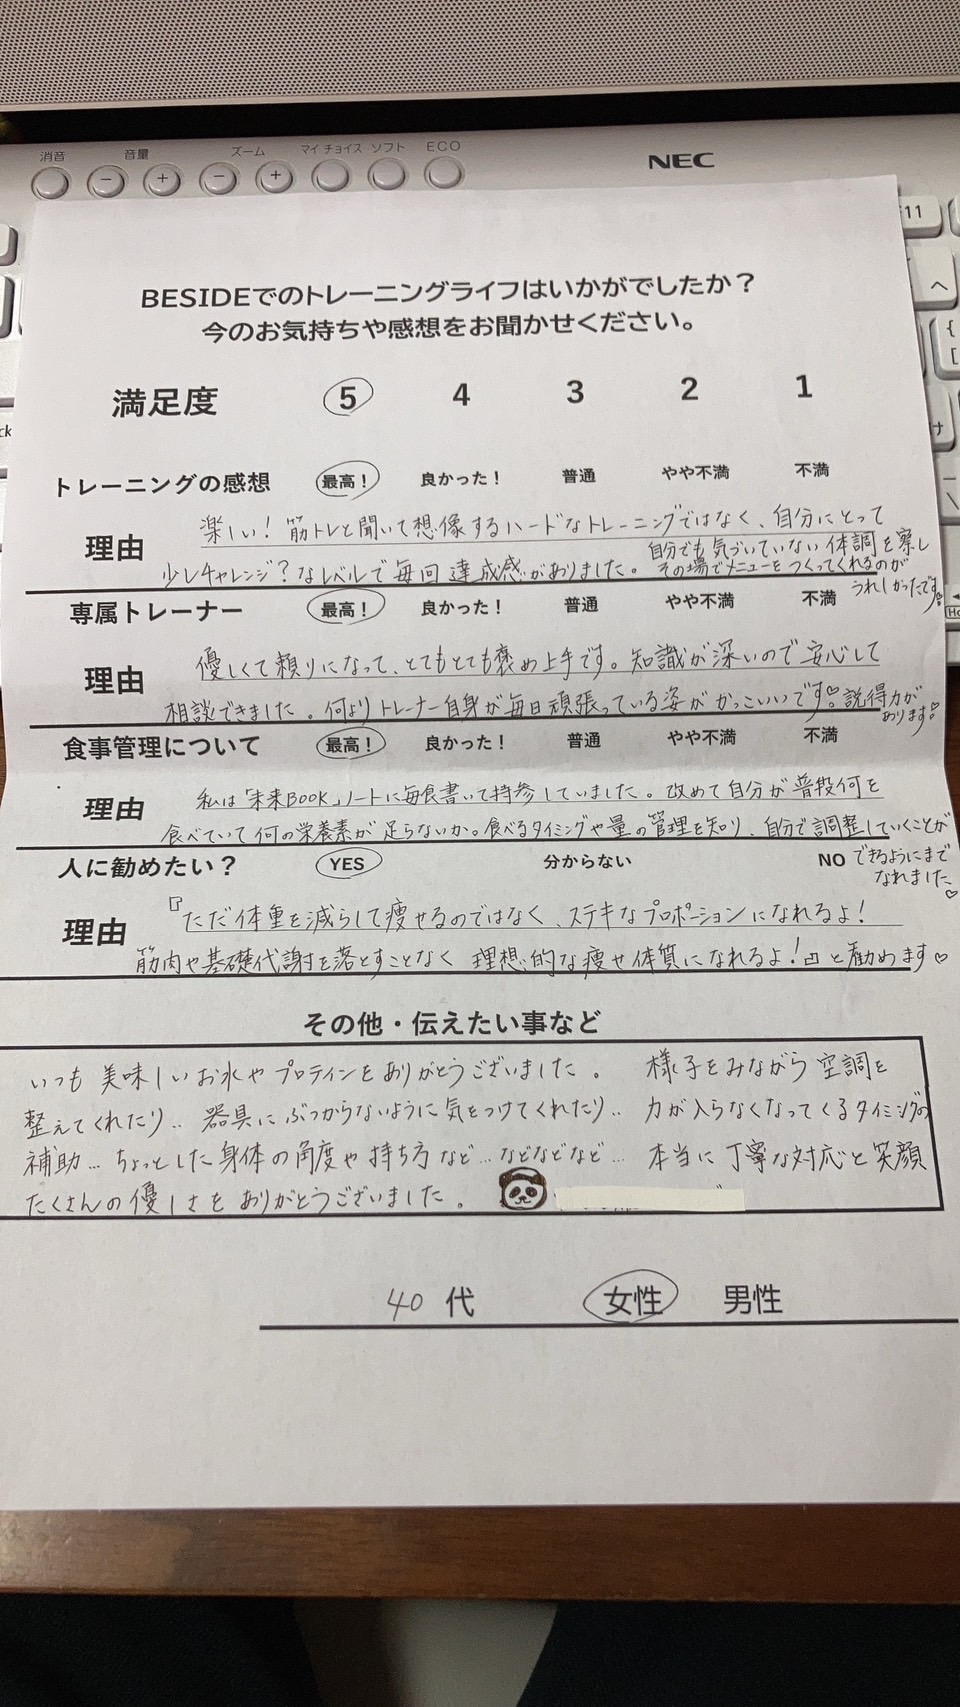 消音 音量 ズーム マイチョイス ソフト ECO
− + − +
NEC
F11
へ
{
[
け
ck
BESIDEでのトレーニングライフはいかがでしたか？
今のお気持ちや感想をお聞かせください。
満足度 5 4 3 2 1
トレーニングの感想 最高！ 良かった！ 普通 やや不満 不満
理由 楽しい！筋トレと聞いて想像するハードなトレーニングではなく、自分にとって
少しチャレンジ？なレベルで毎回達成感がありました。自分でも気づいていない体調を察し
その場でメニューをつくってくれるのが
うれしかったです。
専属トレーナー 最高！ 良かった！ 普通 やや不満 不満
理由 優しくて頼りになって、とてもとても褒め上手です。知識が深いので安心して
相談できました。何よりトレーナー自身が毎日頑張っている姿がかっこいいです♡。説得力が
あります♡。
食事管理について 最高！ 良かった！ 普通 やや不満 不満
理由 私は「未来BOOK」ノートに毎食書いて持参していました。改めて自分が普段何を
食べていて何の栄養素が足らないか。食べるタイミングや量の管理を知り、自分で調整していくことが
できるようにまで
なれました♡
人に勧めたい？ YES 分からない NO
理由 『ただ体重を減らして痩せるのではなく、ステキなプロポーションになれるよ！
筋肉や基礎代謝を落とすことなく 理想的な痩せ体質になれるよ！』と勧めます♡
その他・伝えたい事など
いつも美味しいお水やプロテインをありがとうございました。 様子をみながら空調を
整えてくれたり‥ 器具にぶつからないように気をつけてくれたり‥ 力が入らなくなってくるタイミングの
補助… ちょっとした身体の角度や持ち方など…などなどなど… 本当に丁寧な対応と笑顔
たくさんの優しさをありがとうございました。
40 代 女性 男性